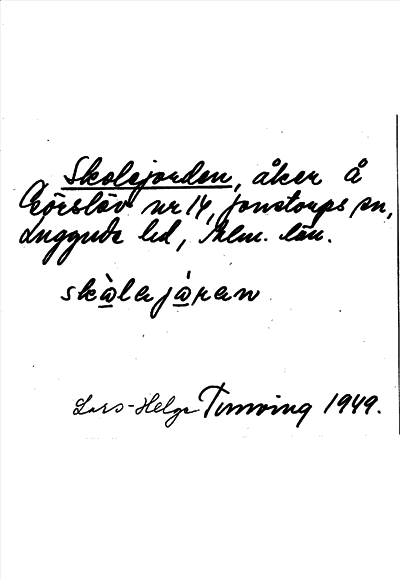 Skolejorden, åker å
Görslöv nr 14, Jonstorps sn,
Luggude hd, Mlm. län.
skɷ̀lejɷ̀ren
Lars-Helge Tunving 1949.